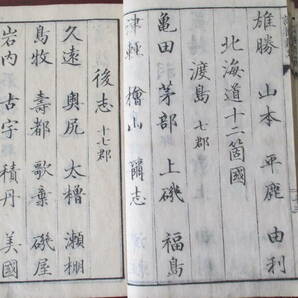 雄勝 山本 平鹿 由利
北海道十二箇國
渡島 七郡
亀田 茅部 上磯 福島
津軽 檜山 爾志
後志 十七郡
久遠 奥尻 太櫓 瀬棚
島牧 壽都 歌棄 磯屋
岩内 古宇 積丹 美國